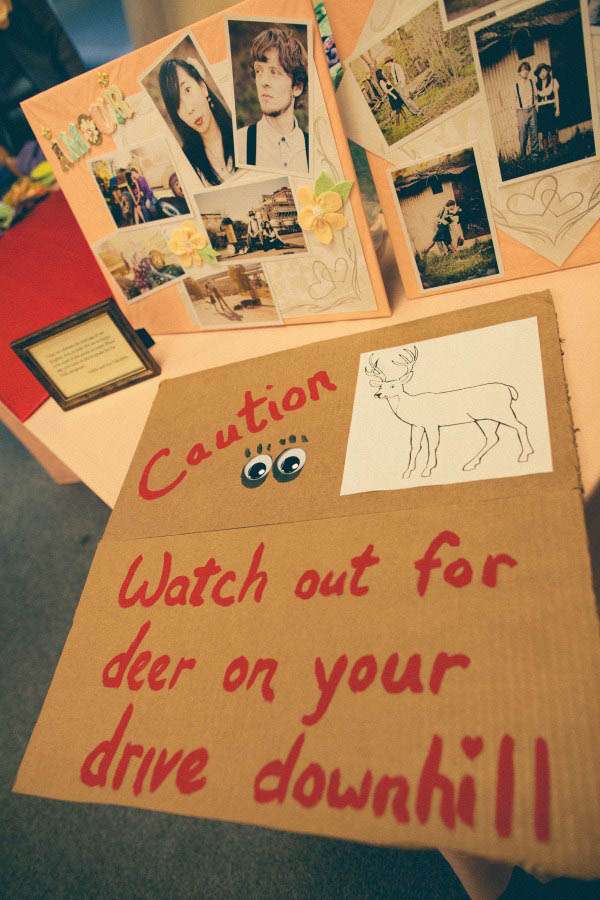 AMOUR
Caution
Watch out for
deer on your
drive downhill